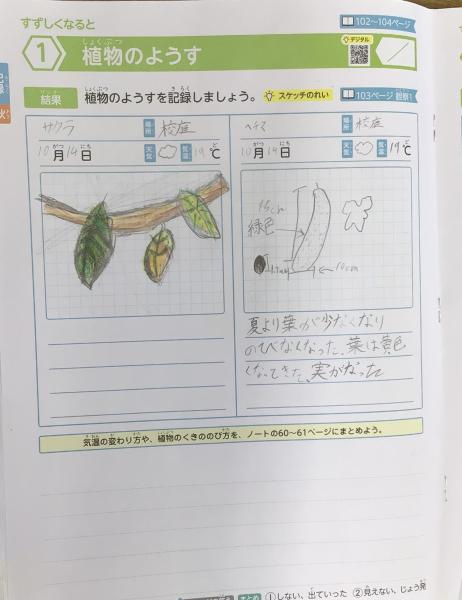 すずしくなると
102〜104ページ
1 植物のようす
しょくぶつ
デジタル
結果 植物のようすを記録しましょう。 スケッチのれい 103ページ 観察1
サクラ 場所 校庭
10月14日 天気 気温 19℃
ヘチマ 場所 校庭
10月14日 天気 気温 19℃
緑色
夏より葉が少なくなり
のびなくなった。葉は黄色
くなってきた。実がなった
気温の変わり方や、植物のくきののび方を、ノートの60〜61ページにまとめよう。
まとめ ①しない、出ていった ②見えない、じょう発